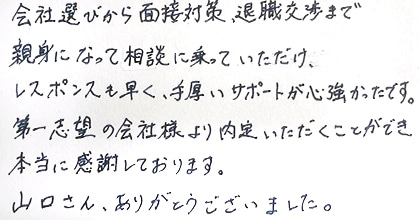 会社選びから面接対策、退職交渉まで
親身になって相談に乗っていただけ、
レスポンスも早く、手厚いサポートが心強かったです。
第一志望の会社様より内定いただくことができ
本当に感謝しております。
山口さん、ありがとうございました。